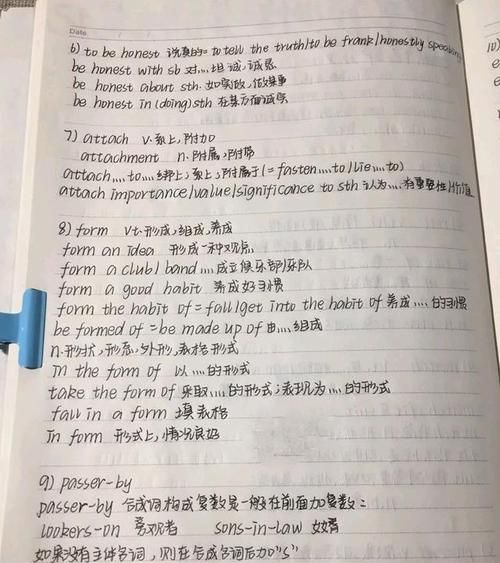 Date
6) to be honest 说真的 = to tell the truth/to be frank/honestly speaking
be honest with sb 对...坦诚,诚恳
be honest about sth. 如实做,做某事
be honest in (doing) sth 在某方面诚实
7) attach v.系上,附加
attachment n.附属,附带
attach....to...绑上,系上,附属于(=fasten....to/tie....to)
attach importance/value/significance to sth 认为...有重要性/价值
8) form vt.形成,组成,养成
form an idea 形成一种观点
form a club/ band....成立俱乐部/乐队
form a good habit 养成好习惯
form the habit of = fall/get into the habit of 养成....的习惯
be formed of = be made up of 由....组成
n.形状,形态,外形,表格形式
in the form of 以....的形式
take the form of 采取....的形式;表现为....的形式
fall in a form 填表格
In form 形式上,情况良好
9) passer-by
passer-by 合成词构成复数是一般在前面加复数:
lookers-on 旁观者 sons-in-law 女婿
如果没有主体名词,则在合成名词后加"s"
10)
e
e